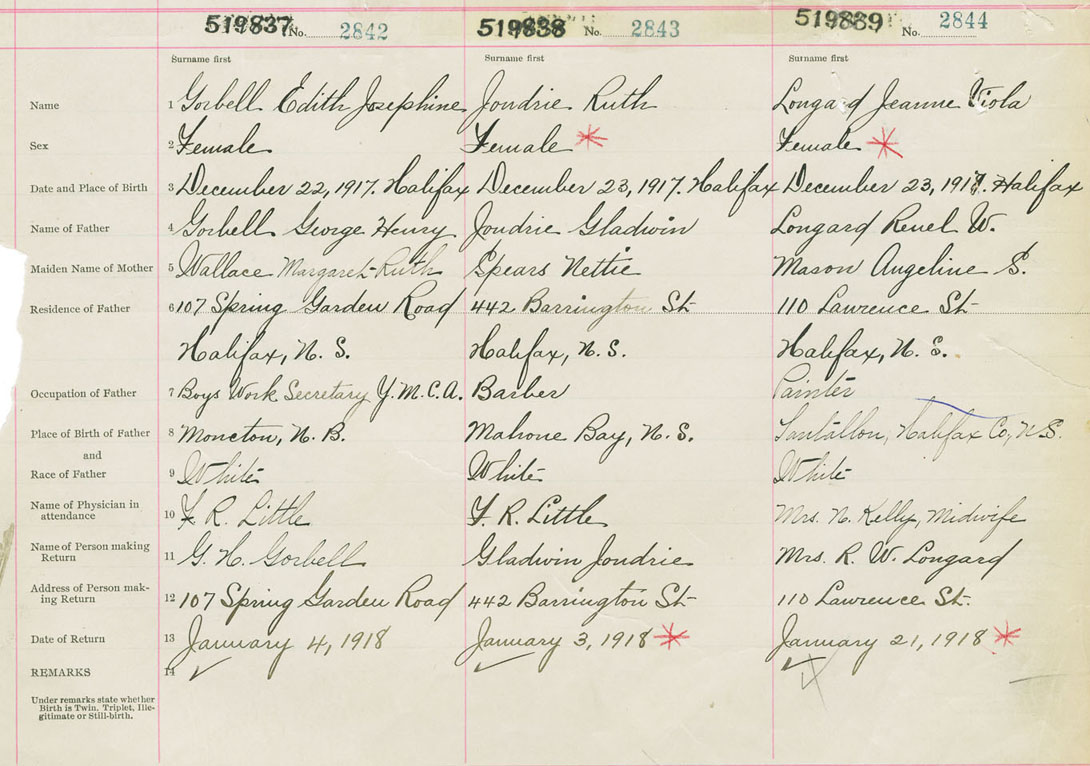 519837 No. 2842 519838 No. 2843 519839 No. 2844
Surname first Surname first Surname first
Name 1 Gorbell Edith Josephine Jondrie Ruth Longard Jeanne Viola
Sex 2 Female Female Female
Date and Place of Birth 3 December 22, 1917. Halifax December 23, 1917. Halifax December 23, 1917. Halifax
Name of Father 4 Gorbell George Henry Jondrie Gladwin Longard Renel W.
Maiden Name of Mother 5 Wallace Margaret Ruth Spears Nettie Mason Angeline S.
Residence of Father 6 107 Spring Garden Road 442 Barrington St 110 Lawrence St
Halifax, N. S. Halifax, N. S. Halifax, N. S.
Occupation of Father 7 Boys Work Secretary Y. M. C. A. Barber Painter
Place of Birth of Father 8 Moncton, N. B. Mahone Bay, N. S. Tantallon, Halifax Co, N. S.
and
Race of Father 9 White White White
Name of Physician in
attendance 10 F. R. Little F. R. Little Mrs. N. Kelly, Midwife
Name of Person making
Return 11 G. H. Gorbell Gladwin Jondrie Mrs. R. W. Longard
Address of Person mak-
ing Return 12 107 Spring Garden Road 442 Barrington St 110 Lawrence St.
Date of Return 13 January 4, 1918 January 3, 1918 January 21, 1918
REMARKS 14
Under remarks state whether
Birth is Twin. Triplet, Ille-
gitimate or Still-birth.